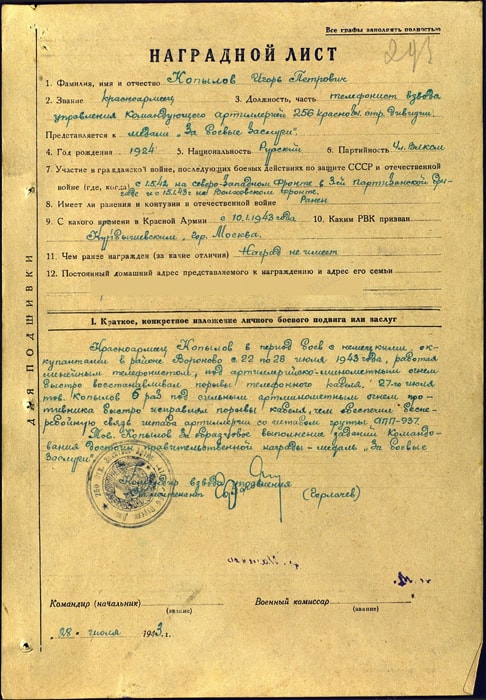 Все графы заполнять полностью
НАГРАДНОЙ ЛИСТ
1. Фамилия, имя и отчество Копылов Игорь Петрович
2. Звание красноармеец 3. Должность, часть телефонист взвода
управления Командующего артиллерией 256 Красноз. стр. Дивизии.
Представляется к медали „За боевые Заслуги".
4. Год рождения 1924 5. Национальность Русский 6. Партийность Чл. ВЛКСМ
7. Участие в гражданской войне, последующих боевых действиях по защите СССР и отечественной
войне (где, когда) с 1.5.42. на северо-Западном Фронте в 3ей Партизанской
и с 15.1.43г. на Волховском Фронте.
8. Имеет ли ранения и контузии в отечественной войне Ранен
9. С какого времени в Красной Армии с 10.1.1943 года 10. Каким РВК призван
гор. Москва.
11. Чем ранее награжден (за какие отличия) Наград не имеет
12. Постоянный домашний адрес представляемого к награждению и адрес его семьи
ДЛЯ ПОДШИВКИ
I. Краткое, конкретное изложение личного боевого подвига или заслуг
Красноармеец Копылов в период боев с немецкими, ок-
купантами в районе Вороново с 22 по 28 июля 1943 года, работая
линейным телефонистом, под артиллерийско-минометным огнем
быстро восстанавливал порывы телефонного кабеля. 27-го июля
тов. Копылов 6 раз под сильным артминометным огнем про-
тивника быстро исправлял порывы кабеля, чем обеспечил беспе-
ребойную связь штаба артиллерии со штабом группы АПП-937.
Тов. Копылов За образцовое выполнение заданий Командо-
вания достоин правительственной награды - медаль „За боевые
Заслуги".
Командир взвода управления
лейтенант (Горлачев)
Командир (начальник)
(звание)
Военный комиссар
(звание)
„28" июля 1943 г.